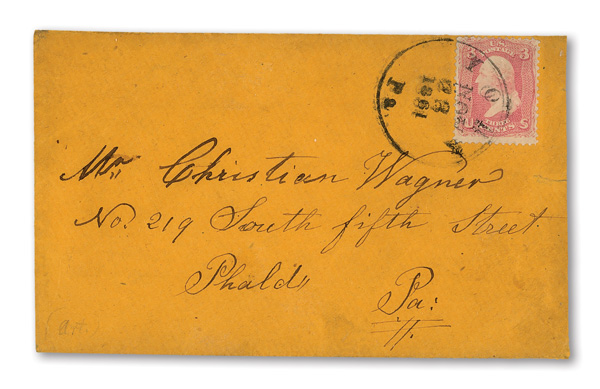 U.S.
POSTAGE
3
23
1861
Pa
U S
THREE
CENTS
Mr. Christian Wagner
No. 219 South fifth Street
Phald"
Pa: